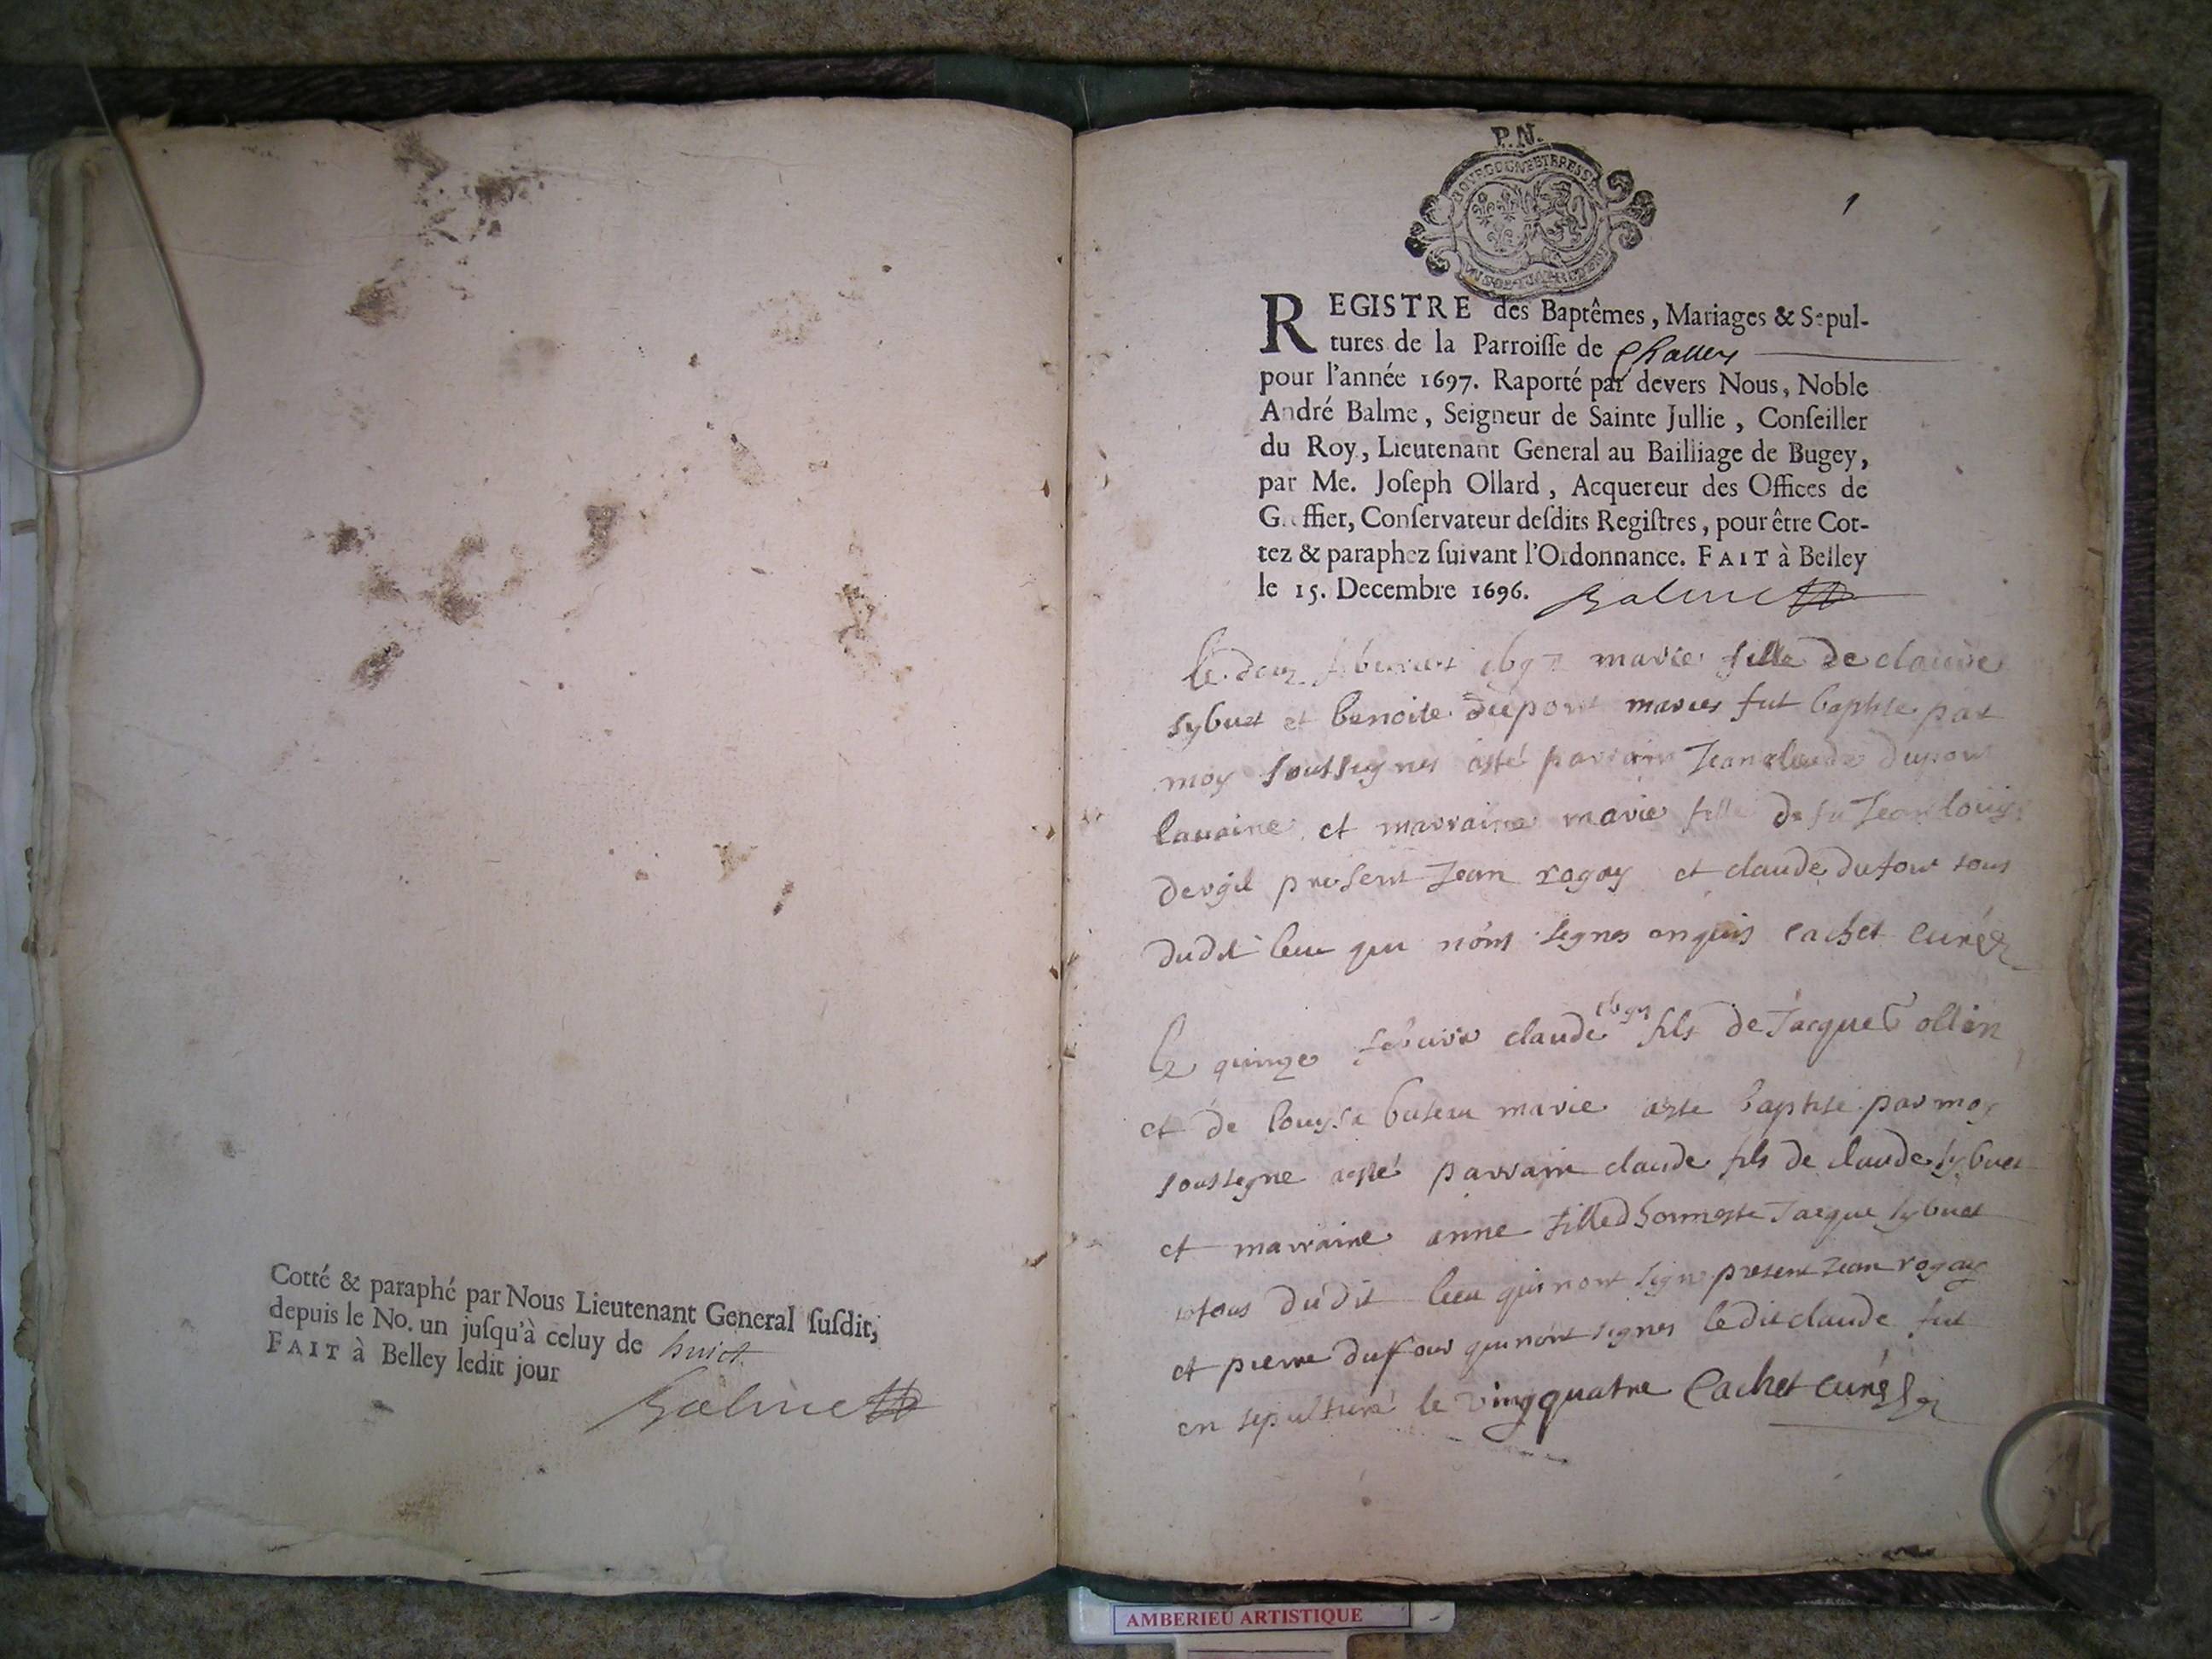 Cotté & paraphé par Nous Lieutenant General ſuſdit,
depuis le No. un juſqu'à celuy de huict
FAIT à Belley ledit jour
Balme
P. N.
BOURGOGNE ET BRESSE
1
REGISTRE des Baptêmes, Mariages & Sepul-
tures de la Parroiſſe de Challey
pour l'année 1697. Raporté par devers Nous, Noble
André Balme, Seigneur de Sainte Jullie, Conſeiller
du Roy, Lieutenant General au Bailliage de Bugey,
par Me. Joſeph Ollard, Acquereur des Offices de
Greffier, Conſervateur deſdits Regiſtres, pour être Cot-
tez & paraphez ſuivant l'Ordonnance. FAIT à Belley
le 15. Decembre 1696. Balme
le marie fille de claude
sybuet et benoite dupont maries fut baptise par
moy soussignes parrain Jean claude dupont
et marraine marie fille de fu Jean louis
present Jean rogay et claude dufour tous
dudit lieu qui nont signes enquis cachet curé
le quinze claude 1697 fils de Jacque
et de baptise par moy
soussigne parrain claude fils de claude sybuet
et marraine anne fille dhonneste Jacque sybuet
tous dudit lieu qui nont signe present Jean rogay
et pierre duffour qui nont signes ledit claude fut
en sepulturé le vingquatre Cachet curé
AMBERIEU ARTISTIQUE